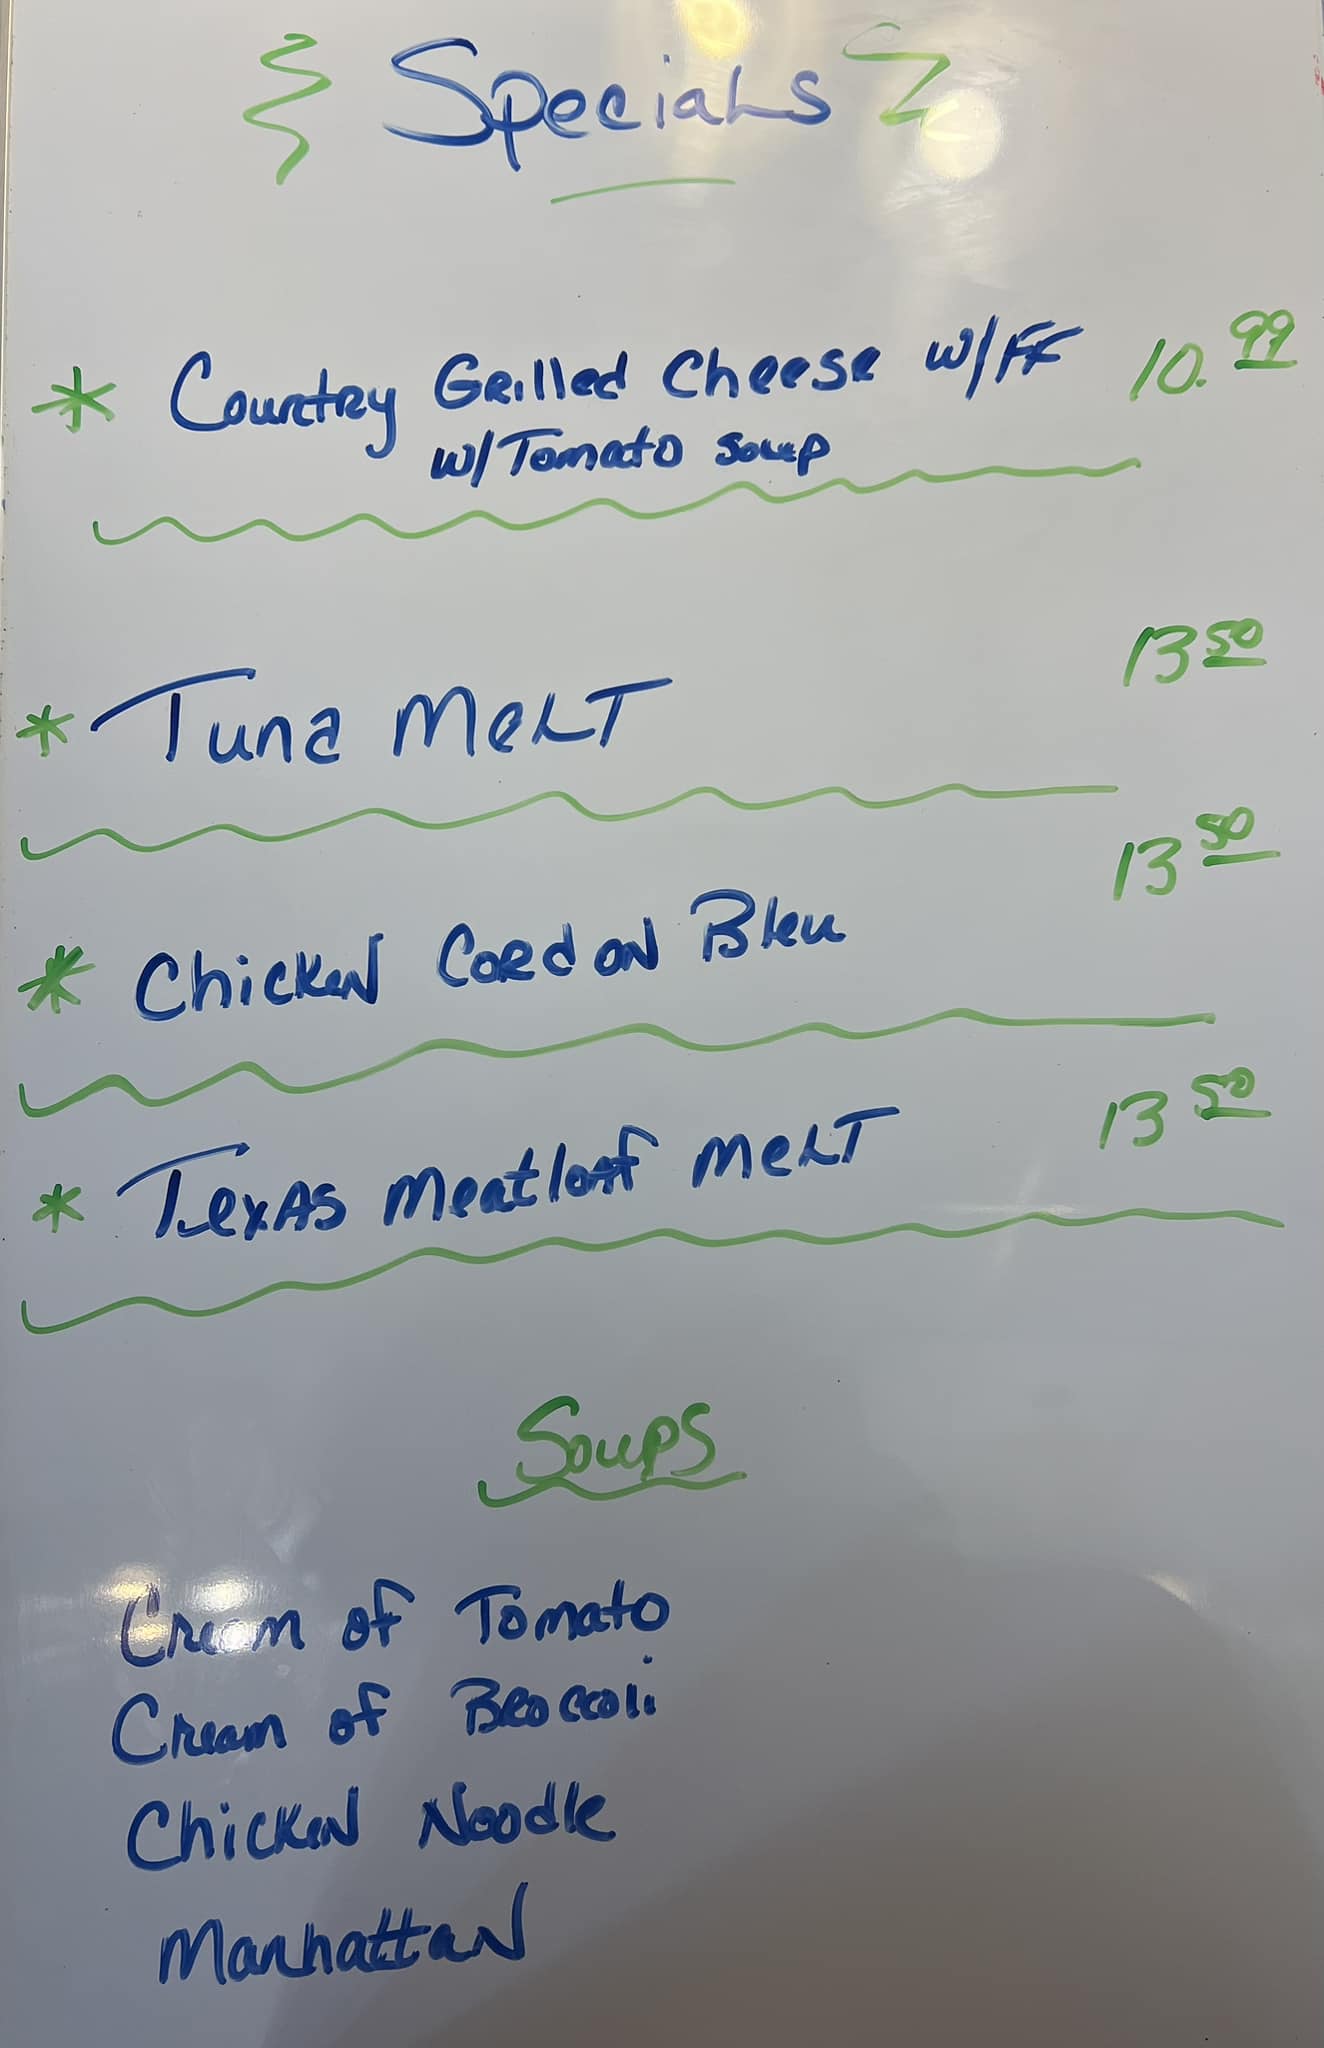 Specials
* Country Grilled Cheese w/FF 10.99
w/Tomato Soup
* Tuna Melt 13 50
* Chicken Cordon Bleu 13 50
* Texas Meatloaf Melt 13 50
Soups
Cream of Tomato
Cream of Broccoli
Chicken Noodle
Manhattan